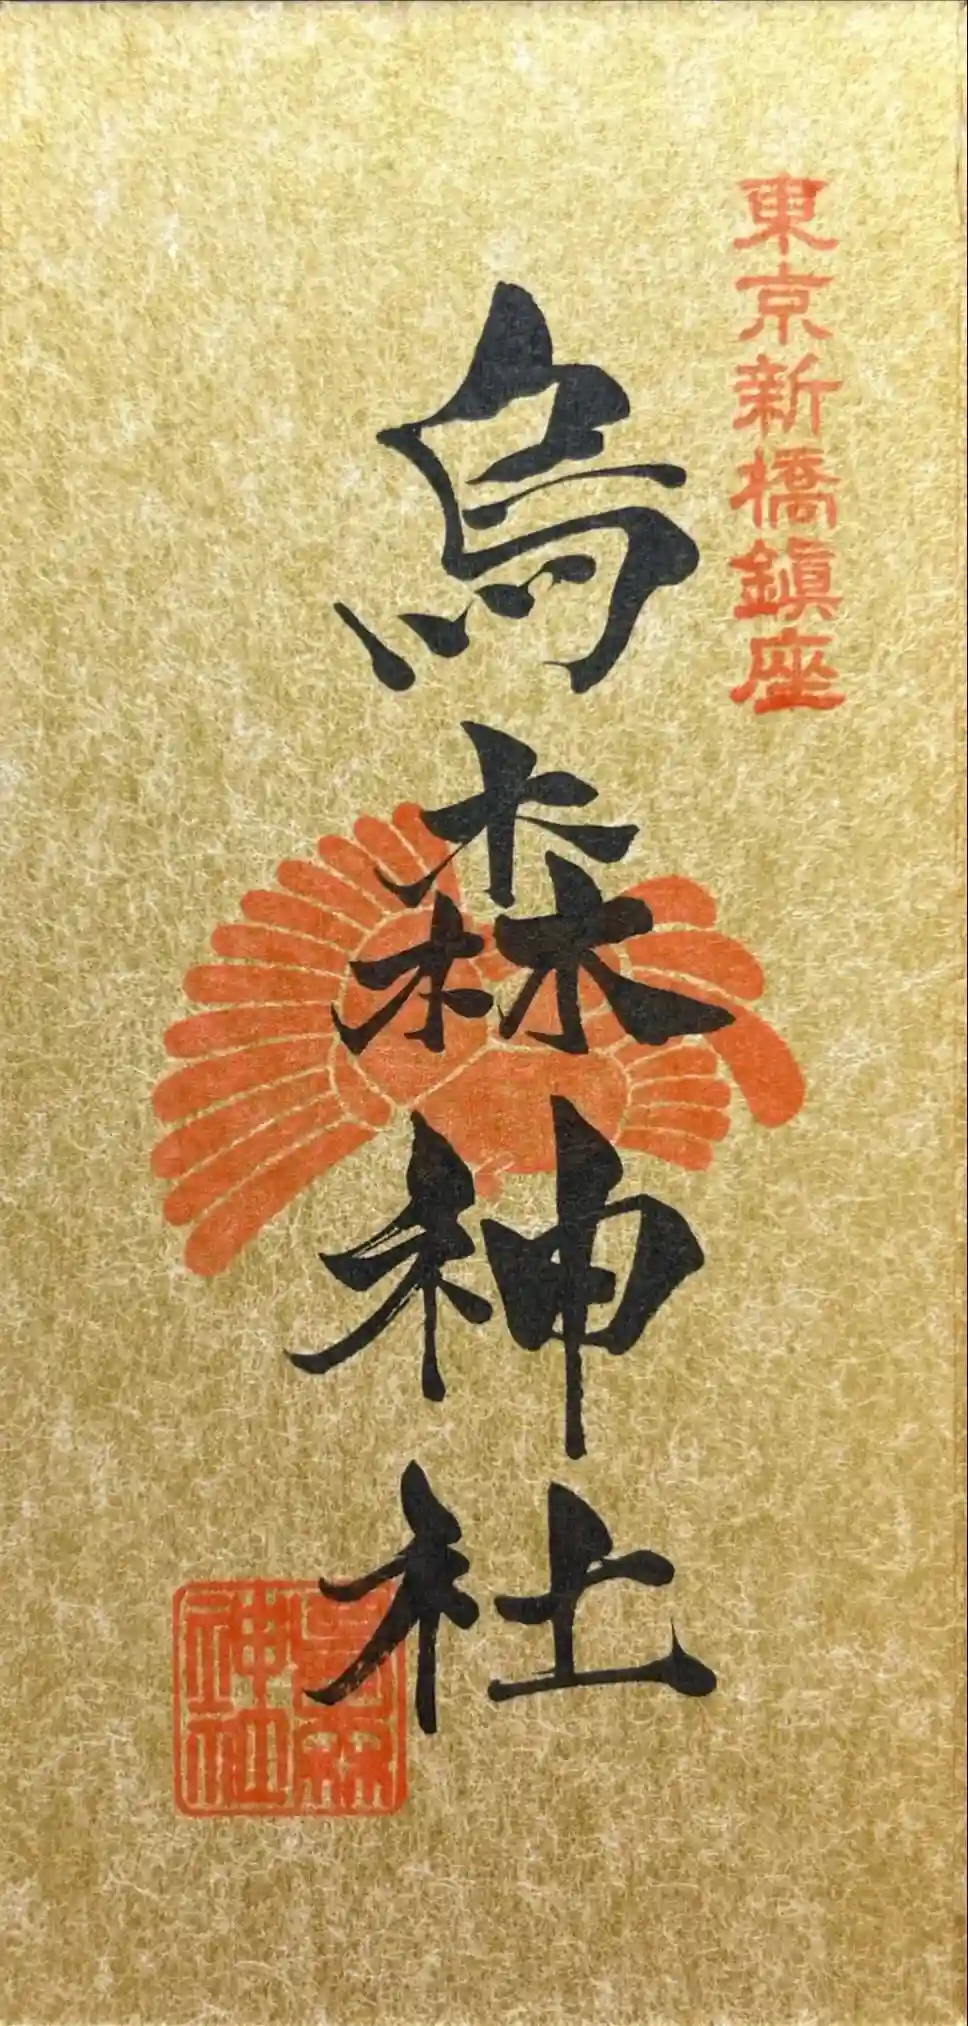 東京新橋鎭座
烏森神社
烏森
神社